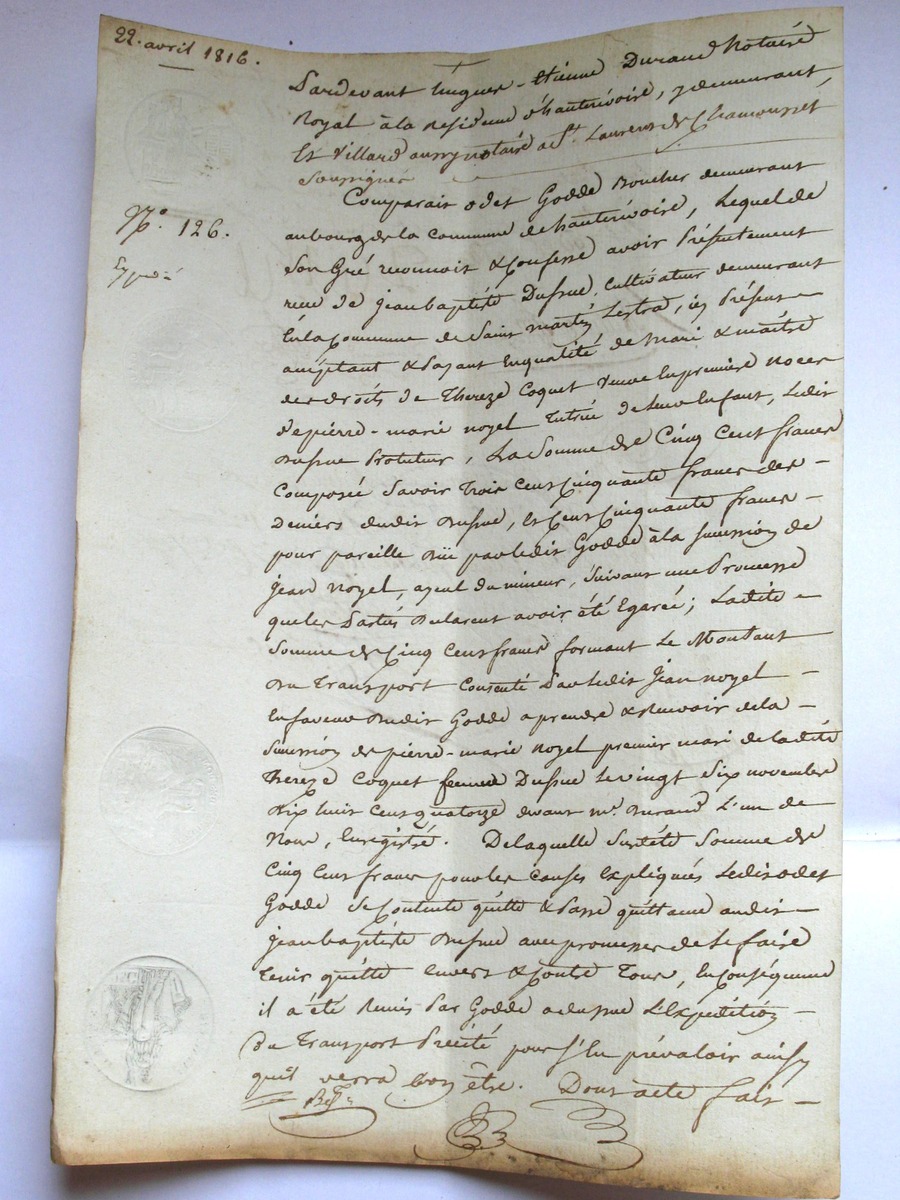 22. avril 1816.
Pardevant hugues-Etienne Durand Notaire
Royal à la Residence d'hauterivoire, y demeurant,
Et Villard aussy notaire a St. Laurent de Chamousset
Soussignés
N.o 126.
Expedié
Comparait odet Godde Boucher demeurant
au bourg de la Commune de hauterivoire, Lequel de
Son Gré reconnoit & Confesse avoir Présentement
recu de Jean baptiste Dufrne, Cultivateur demeurant
En la Commune de Saint martin Lestra, icy Présent
acceptant & Payant En qualité de Mari & maitre
des droits de Thereze Coquet veuve En premiere noces
de pierre-marie noyel Tutrice de Leur Enfant, Ledit
Dufrne Protuteur, La Somme de Cinq Cent francs
Composée Savoir Trois Cent Cinquante francs des
deniers dudit Dufrne, Et Cent Cinquante francs
pour pareille düe par Ledit Godde à la succession de
Jean Noyel, ayeul du mineur, Suivant une Promesse
que les Parties Declarent avoir été Egarée; Ladite
Somme de Cinq Cent francs formant Le Montant
Du Transport Consenté Par Ledit Jean noyel
En faveur Dudit Godde a prendre & Recevoir de la
Succession de pierre-marie Noyel premier mari de la dite
Thereze Coquet femme Dufrne Le vingt Six novembre
dix huit Cent quatorze devant me. Durand L'un de
Nous, Enregistré. De laquelle Susdite Somme de
Cinq Cent francs pour les Causes Expliquées Ledit odet
Godde Se Contente quitte & Passe quittance audit
Jean baptiste Dufrne avec promesses de Le faire
Tenir quitte Envers & Contre Tous, En Conséquence
il a été Remis Par Godde a dufrne L'Expédition
Du Transport Précité pour S'En prévaloir ainsy
qu'il verra bon être. Dont acte fait